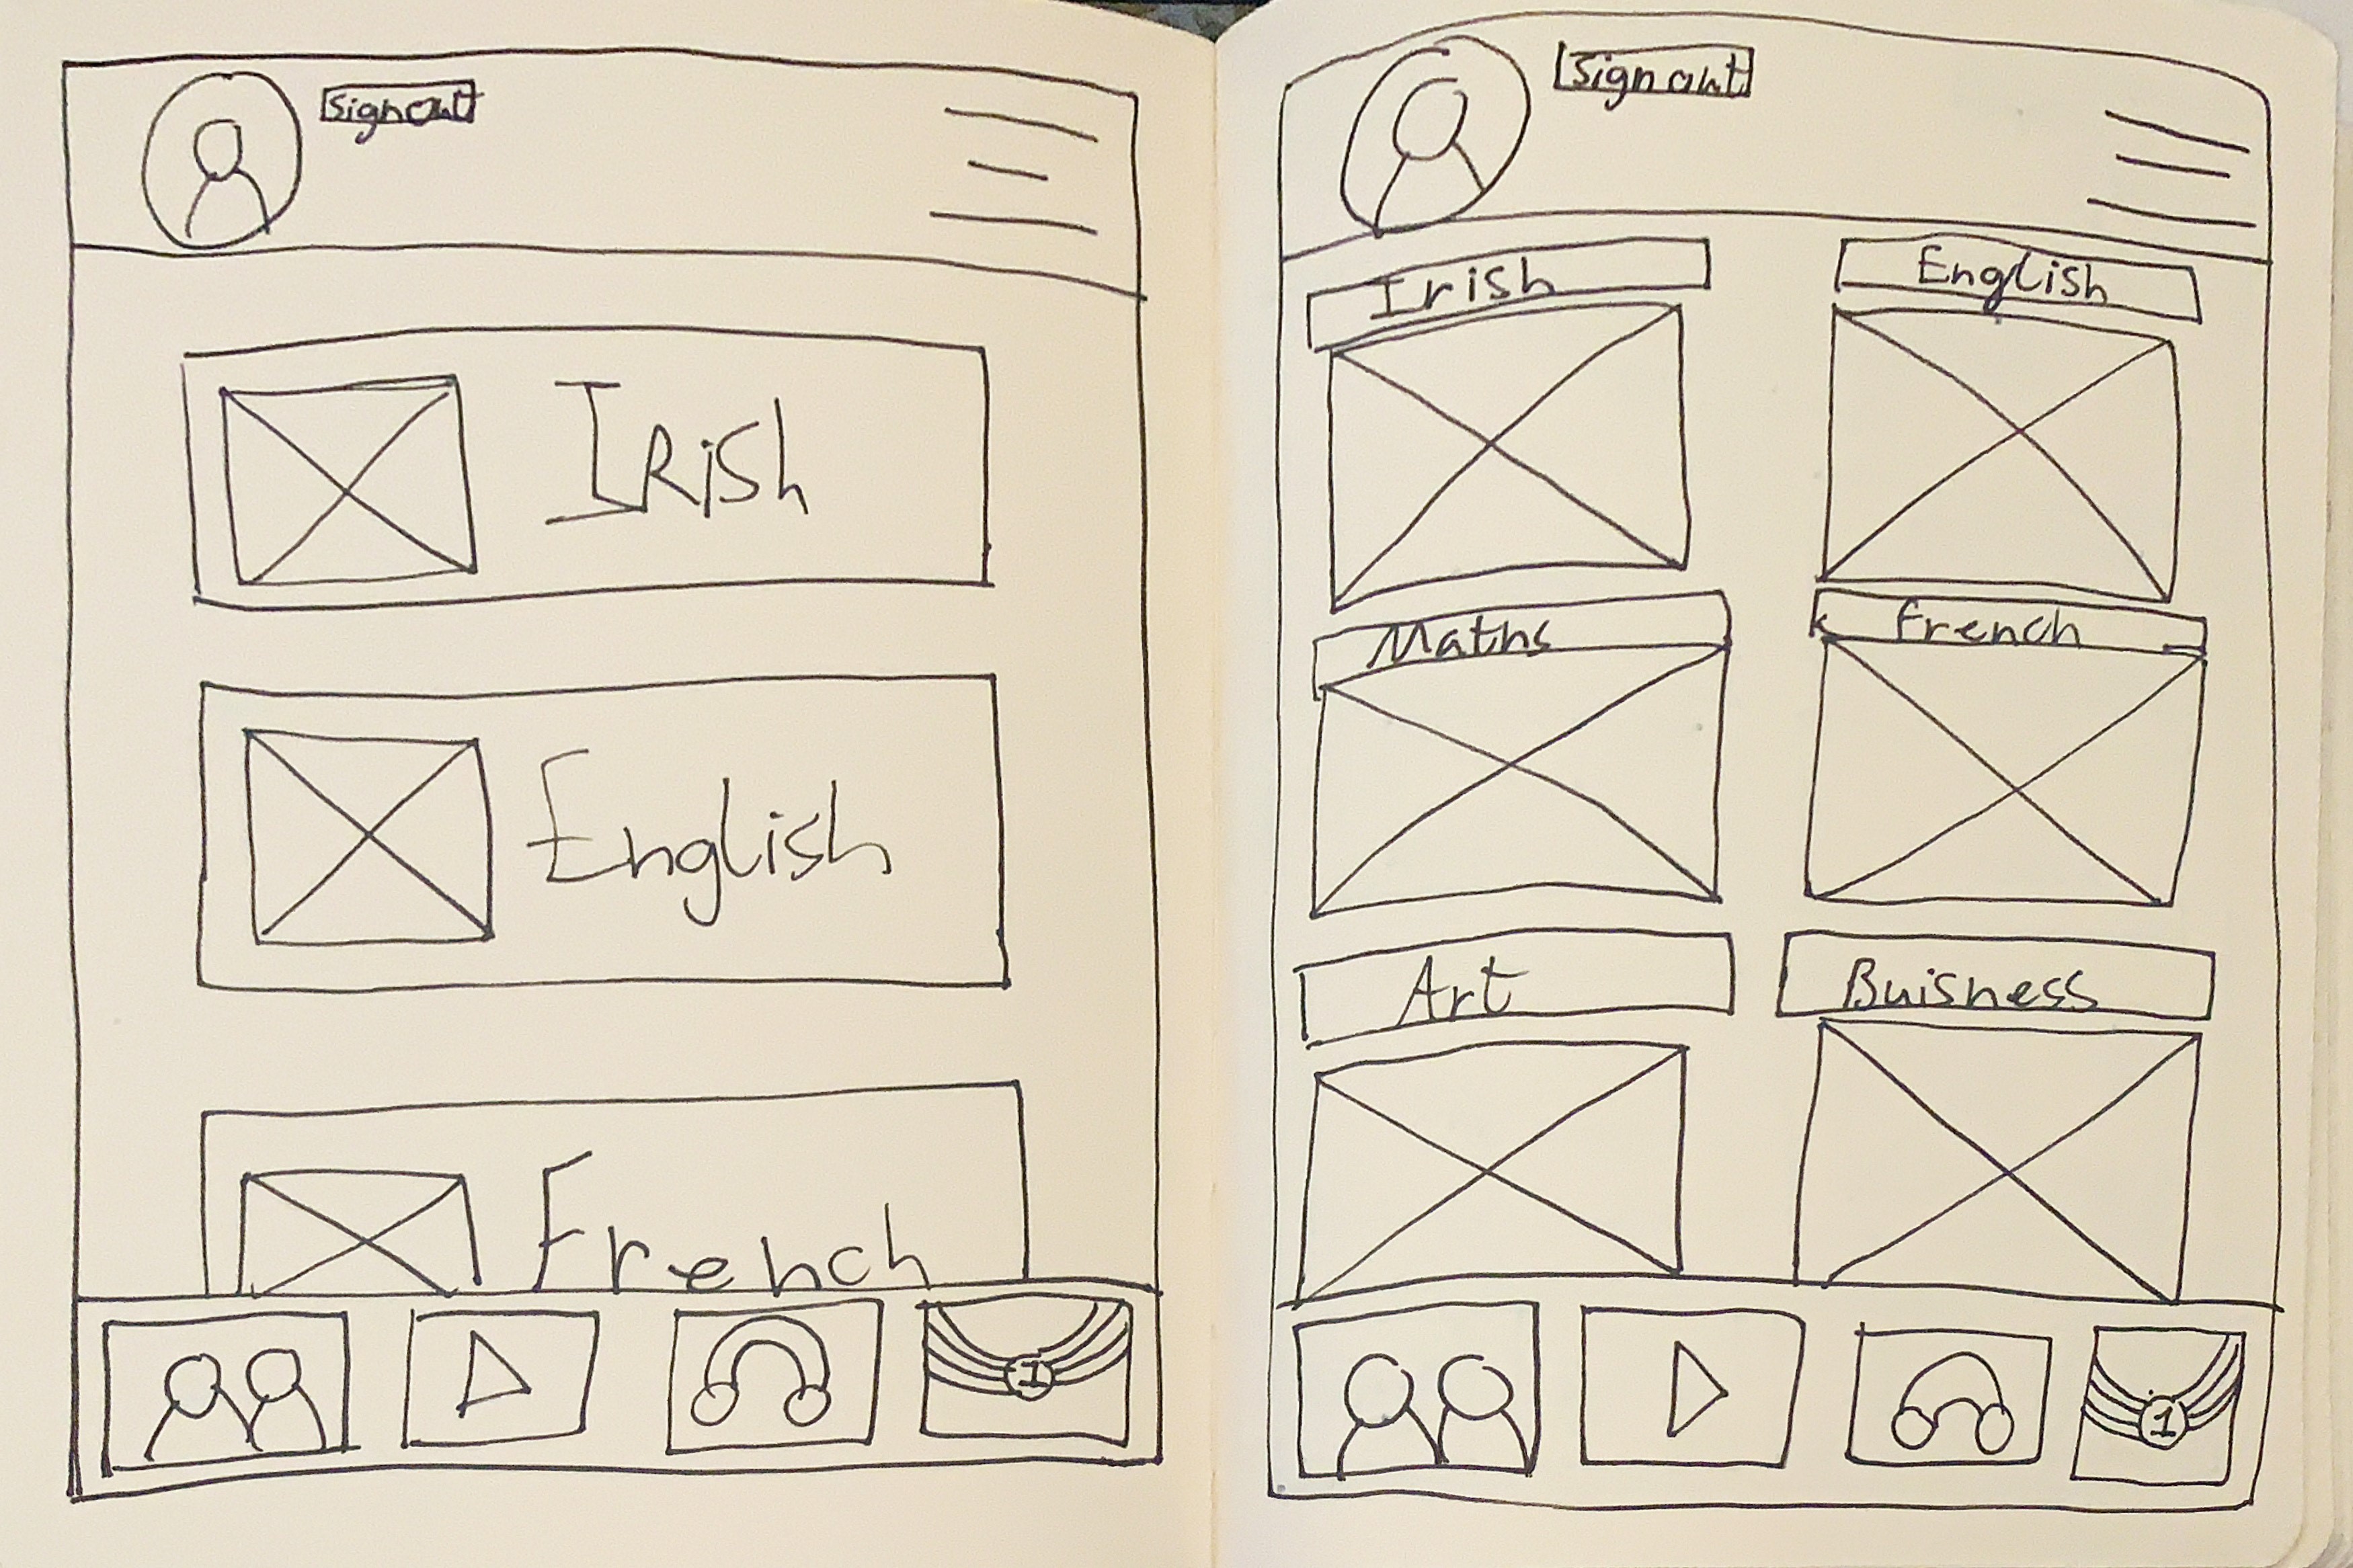 Sign out
IRish
English
French
1
Sign out
Irish English
Maths French
Art Buisness
1